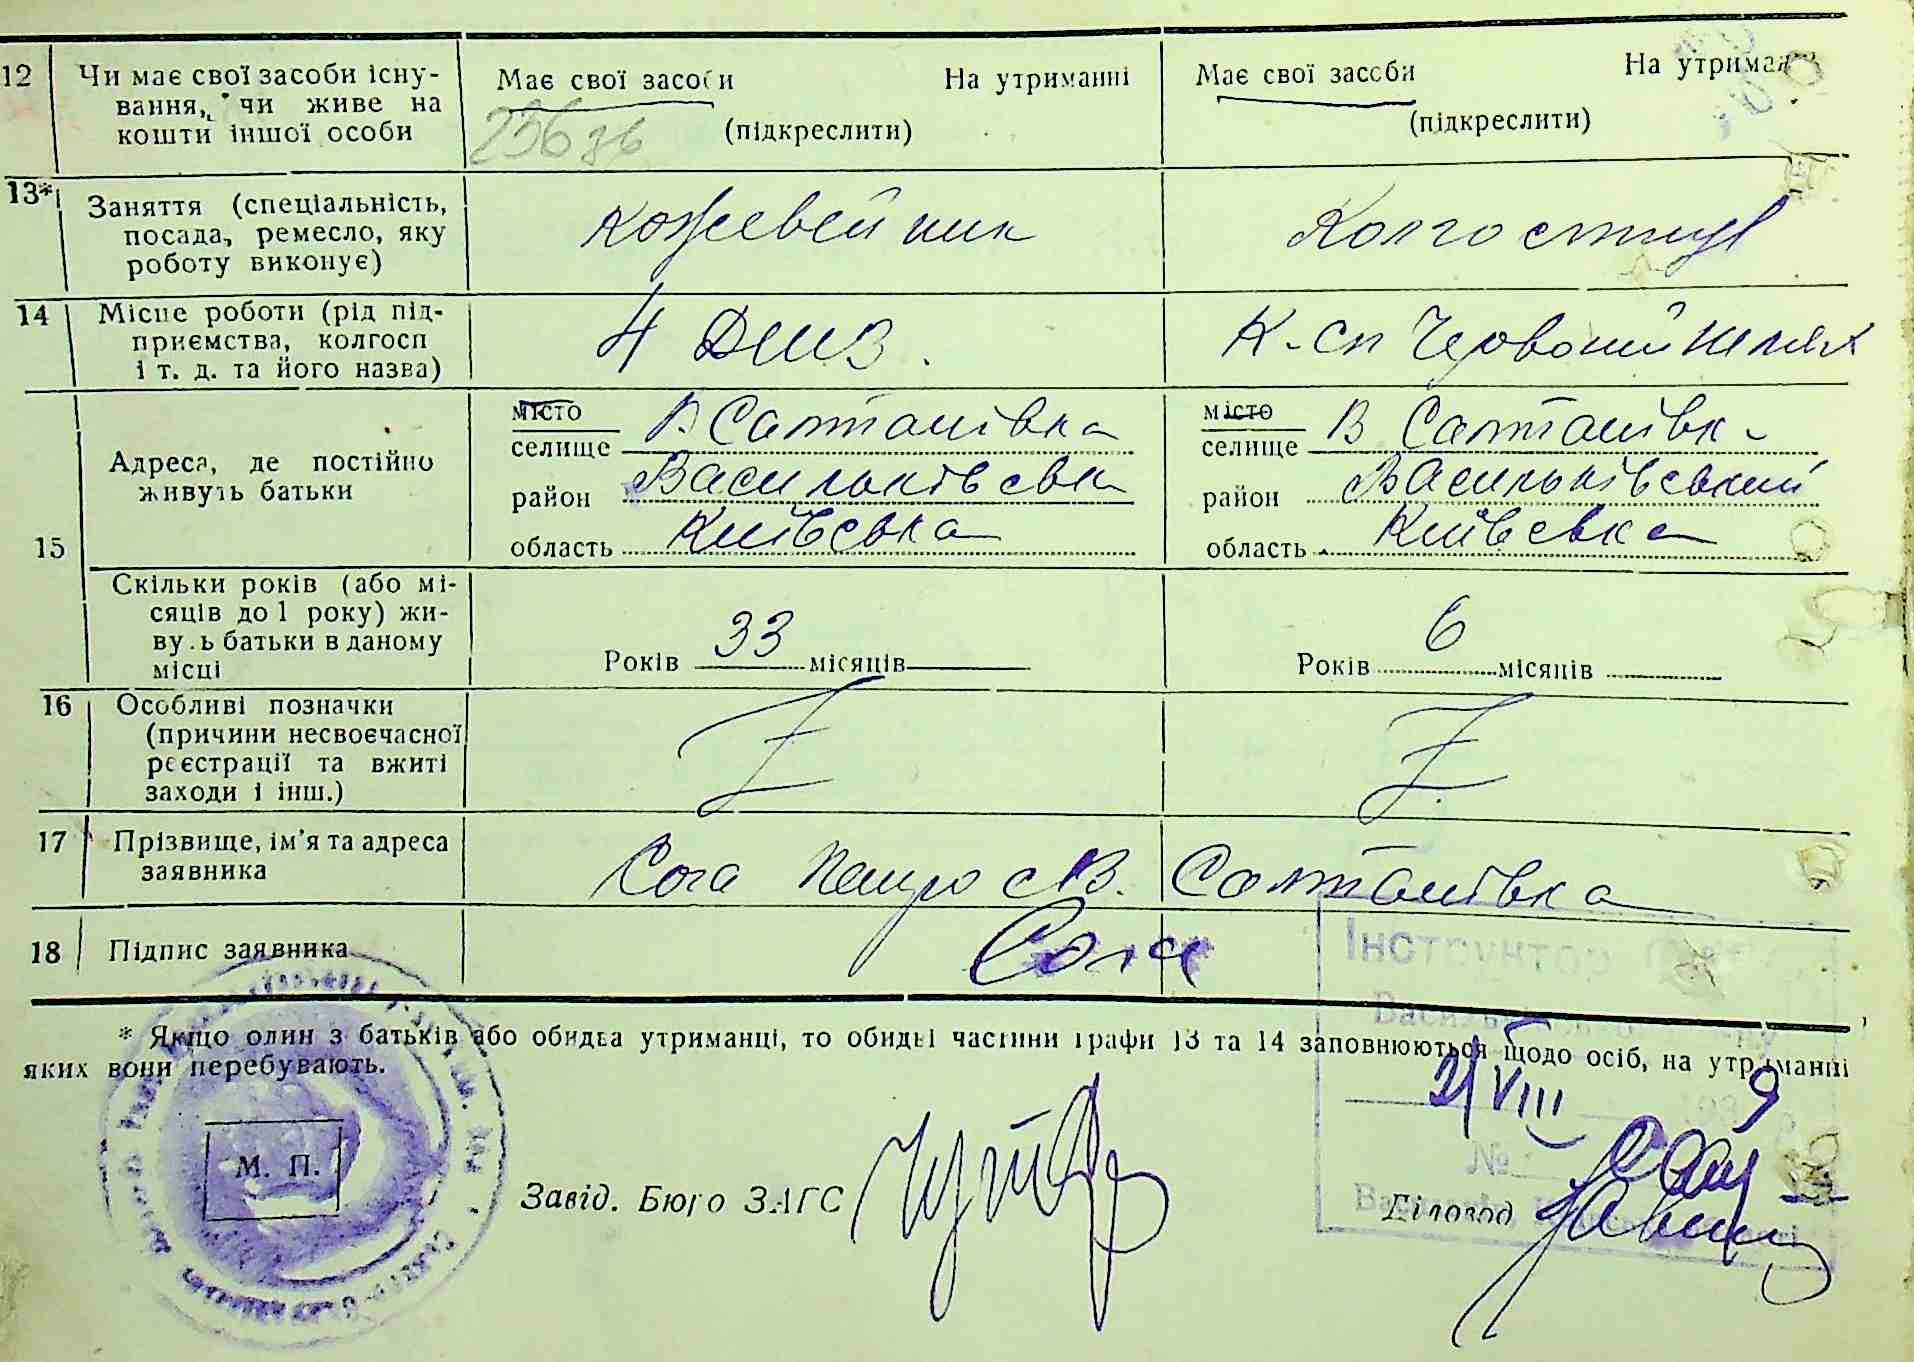 12 Чи має свої засоби існу-
вання, чи живе на
кошти іншої особи
Має свої засоби На утриманні
(підкреслити)
Має свої засоби На утриманні
(підкреслити)
13* Заняття (спеціальність,
посада, ремесло, яку
роботу виконує)
Кожевейник
Колгоспниця
14 Місце роботи (рід під-
приємства, колгосп
і т. д. та його назва)
4 ДШЗ.
К-сп Червоний шлях
15
Адреса, де постійно
живуть батьки
місто
селище В Салтанівка
район Васильківськ
область Київська
місто
селище В Салтанівк
район Васильківський
область Київська
Скільки років (або мі-
сяців до 1 року) жи-
вуть батьки в даному
місці
Років 33 місяців
Років 6 місяців
16 Особливі позначки
(причини несвоєчасної
реєстрації та вжиті
заходи і інш.)
17 Прізвище, ім'я та адреса
заявника
Сога Петро с В. Салтанівка
18 Підпис заявника
Сога
* Якщо один з батьків або обидва утриманці, то обидві частини графи 13 та 14 заповнюються щодо осіб, на утриманні
яких вони перебувають.
Інструктор
21/VIII 1939
№
М. П.
Завід. Бюро ЗАГС
Діловод